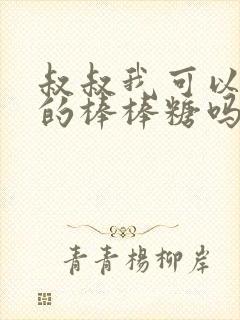 叔叔我可以
的棒棒糖吗
青青楊柳岸